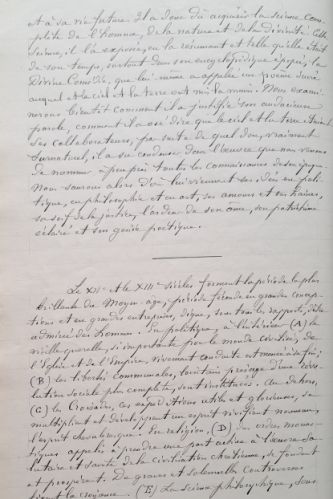 et à sa vie future. Il a donc dû acquérir la science com-
plète de l'homme, de la nature et de la divinité. Cette
science, il l'a exposée, en la résumant et telle qu'elle était
de son temps, surtout dans son encyclopédique épopée, la
Divine Comédie, que lui-même a appelée un poème sacré
auquel et le ciel et la terre ont mis la main. Nous exami-
nerons bientôt comment il a justifié son audacieuse
parole, comment il a osé dire que le ciel et la terre étaient
ses collaborateurs; par suite de quel don, vraiment
surnaturel, il a su condenser dans l'œuvre que nous venons
de nommer à peu près toutes les connaissances de son époque.
Nous saurons alors d'où lui viennent ses idées en poli-
tique, en philosophie et en art, ses amours et ses haines,
sa soif de la justice, l'ardeur de son âme, son patriotisme
sincère et son génie poétique.
Le XIIe et le XIIIe siècles forment la période la plus
brillante du Moyen-âge, période féconde en grandes concep-
tions et en grandes entreprises, dignes, sous tous les rapports, d'être
admirées des hommes. En politique, à l'intérieur (A) la
vieille querelle, si importante pour le monde chrétien, de
l'Eglise et de l'Empire, vivement conduite est menée à fin;
(B) les libertés communales, lointain présage d'une révo-
lution sociale plus complète, sont instituées. Au dehors,
(C) les Croisades, ces expéditions utiles et glorieuses, se
multiplient et développent un esprit vivifiant nouveau,
l'esprit chevaleresque. En religion, (D) des ordres monas-
tiques appelés à prendre une part active à l'œuvre sa-
lutaire et sainte de la civilisation chrétienne, se fondent
et prospèrent. De graves et solennelles controverses
la croyance. (E) La science philosophique, sous